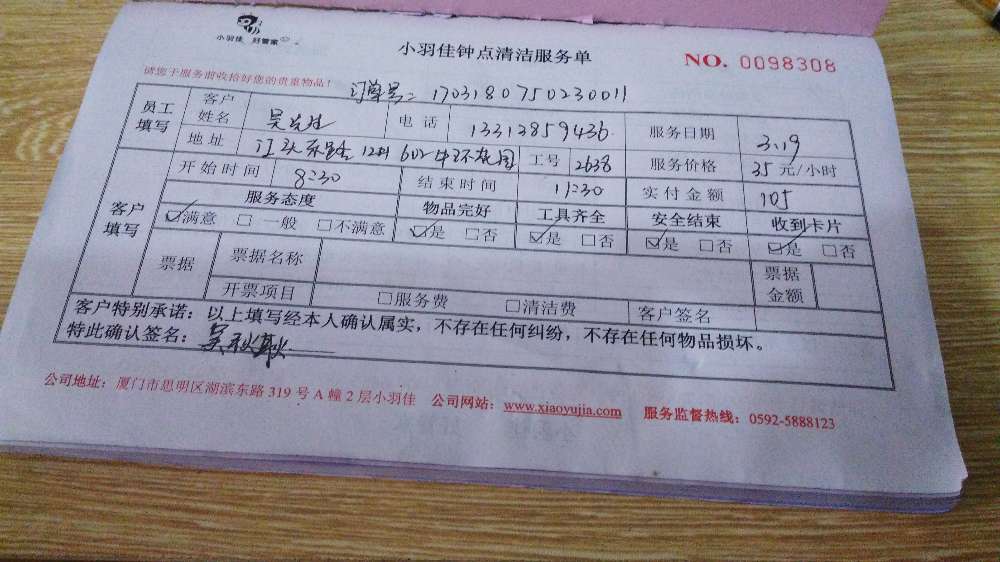 小羽佳 好管家
小羽佳钟点清洁服务单
NO. 0098308
请您于服务前收拾好您的贵重物品！
订单号：1703180750230011
员工填写 客户姓名 吴先生 电话 13313859436 服务日期 3.19
地址 江头东路 602 工号 2638 服务价格 35 元/小时
客户填写 开始时间 8:30 结束时间 11:30 实付金额 105
服务态度 物品完好 工具齐全 安全结束 收到卡片
☑满意 □一般 □不满意 ☑是 □否 ☑是 □否 ☑是 □否 ☑是 □否
票据 票据名称 票据金额
开票项目 □服务费 □清洁费 客户签名
客户特别承诺：以上填写经本人确认属实，不存在任何纠纷，不存在任何物品损坏。
特此确认签名：吴
公司地址：厦门市思明区湖滨东路 319 号 A 幢 2 层小羽佳 公司网站：www.xiaoyujia.com 服务监督热线：0592-5888123